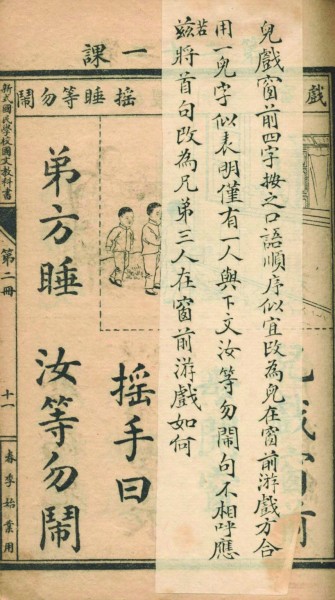 課一
戲
兒戲窗前四字按之口語順序似宜改為兒在窗前游戲方合
用一兒字似表明僅有一人與下文汝等勿鬧句不相呼應
若
茲將首句改為兄弟三人在窗前游戲如何
搖手曰
搖睡等勿鬧
弟方睡 汝等勿鬧
新式國民學校國文教科書
第二冊
十一
春季始業用